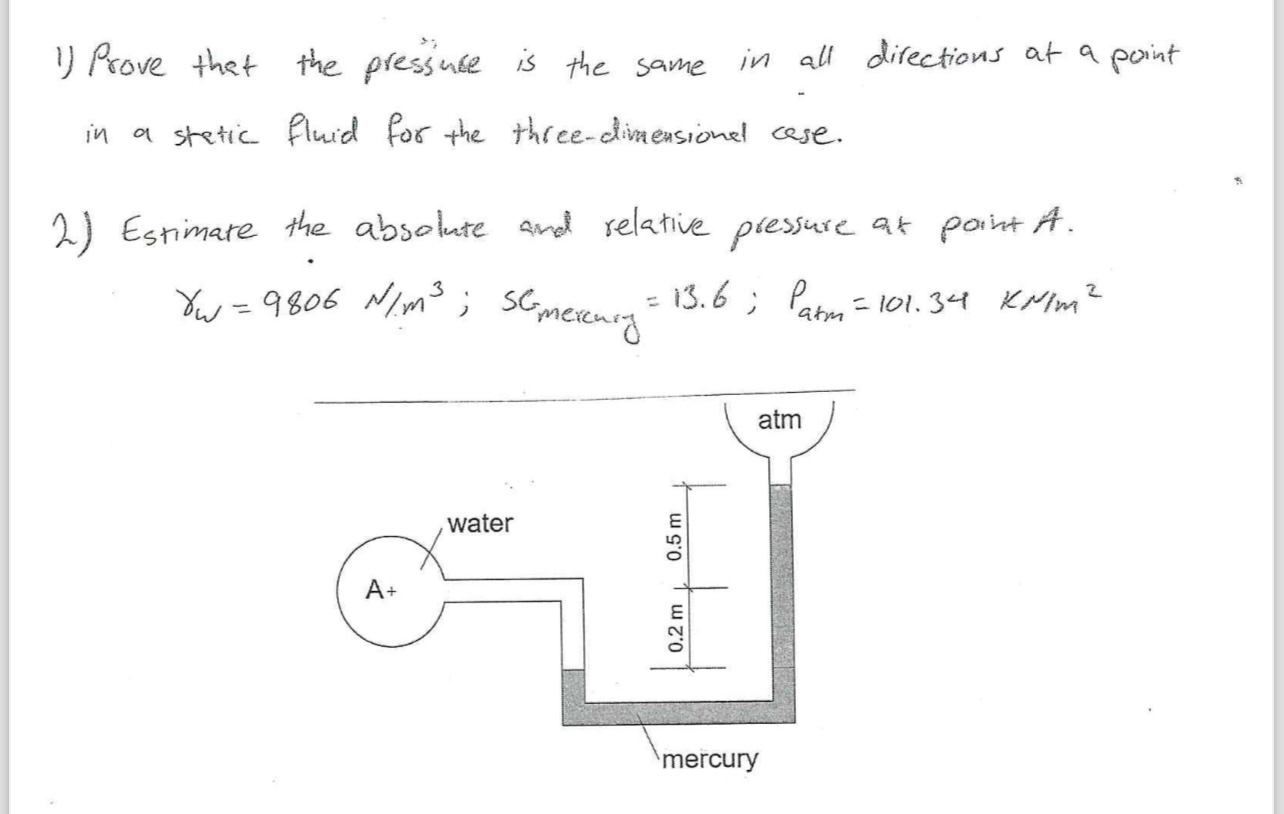 1) Prove that the pressure is the same in all directions at a point
in a static fluid for the three-dimensional case.
2) Estimate the absolute and relative pressure at point A.
γw = 9806 N/m³ ; SGmercury = 13.6 ; Patm = 101.34 KN/m²
atm
water
0.5 m
A+
0.2 m
mercury